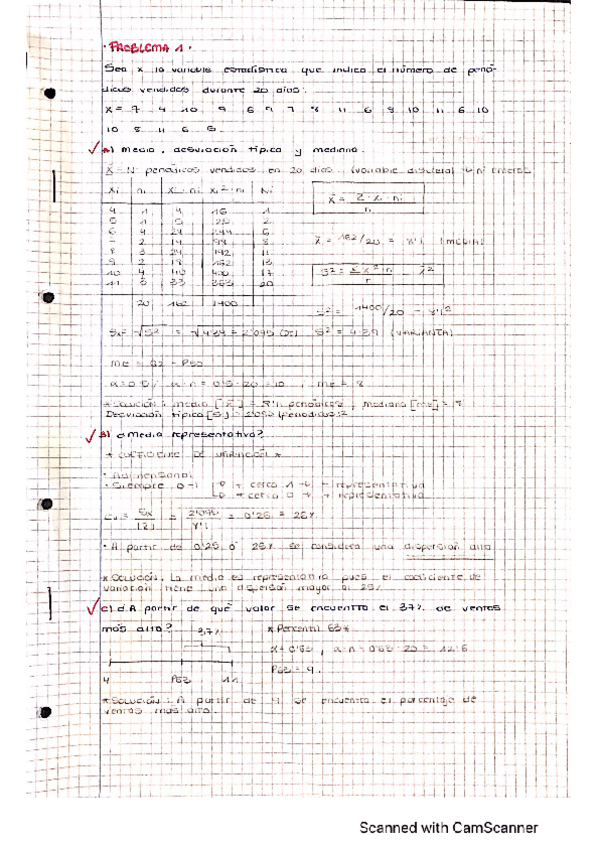 · PROBLEMA 1 ·
Sea x la variable estadística que indica el número de perió-
dicos vendidos durante 20 días.
X = 7 4 10 9 6 9 7 8 11 6 8 10 11 6 10
10 8 11 6 5.
√ A) Media, desviación típica y mediana.
X = Nº periódicos vendidos en 20 días. (variable discreta)
Xi ni Xi · ni Xi² · ni Ni
4 1 4 16 1
5 1 5 25 2
6 4 24 144 6
7 2 14 98 8
8 3 24 192 11
9 2 18 162 13
10 4 40 400 17
11 3 33 363 20
20 162 1400
x̄ = Σ xi · ni / n
x̄ = 162/20 = 8'1 (MEDIA)
S² = Σ xi² · ni / n - x̄²
S² = 1400/20 - 8'1²
Sx = √S² = √4'39 = 2'095 (DT) S² = 4'39 (VARIANZA)
Me = Q2 = P50
α = 0'5, α · n = 0'5 · 20 = 10, me = 8
* SOLUCIÓN: media [x̄] = 8'1 periódicos, mediana [me] = 8
Desviación típica [S] = 2'095 (periódicos)
√ B) ¿Media representativa?
* COEFICIENTE DE VARIACIÓN *
· Adimensional
· Siempre 0-1 + cerca 1 → - representativa
+ cerca 0 → + representativa
Cv = Sx / |x̄| = 2'095 / 8'1 = 0'26 = 26%
· A partir de 0'25 ó 25% se considera una dispersión alta
* SOLUCIÓN: La media es representativa pues el coeficiente de
variación tiene una dispersión mayor al 25%
√ C) ¿A partir de qué valor se encuentra el 37% de ventas
más alto? 37% * Percentil 63 *
α = 0'63, α · n = 0'63 · 20 = 12'6
P63 = 9.
4 P63 11
* SOLUCIÓN: A partir de 9 se encuentra el porcentaje de
ventas más alto.
Scanned with CamScanner